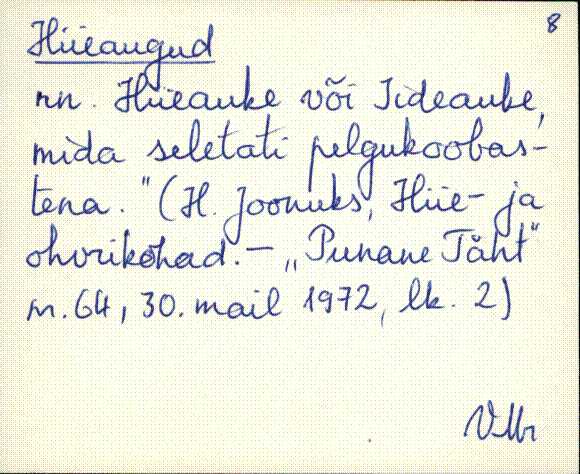 8
Hiieaugud
nn. Hiieauke või Iideauke,
mida seletati pelgukoobas-
tena." (H. Joonuks, Hiie- ja
ohvrikohad. – „Punane Täht"
nr. 64, 30. mail 1972, lk. 2)